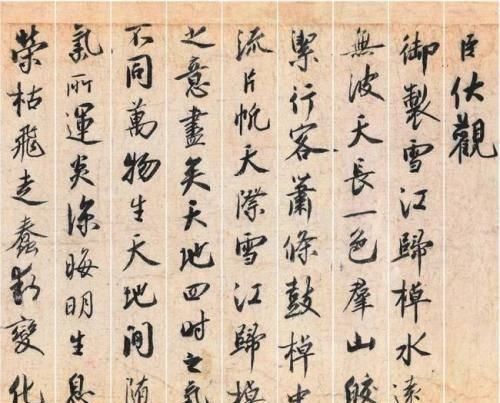 臣伏觀
御製雪江歸棹水遠
無波天長一色羣山皎
潔行客蕭條鼓棹中
流片帆天際雪江歸棹
之意盡矣天地四時之氣
不同萬物生天地間隨
氣所運炎涼晦明生息
榮枯飛走蠢動變化